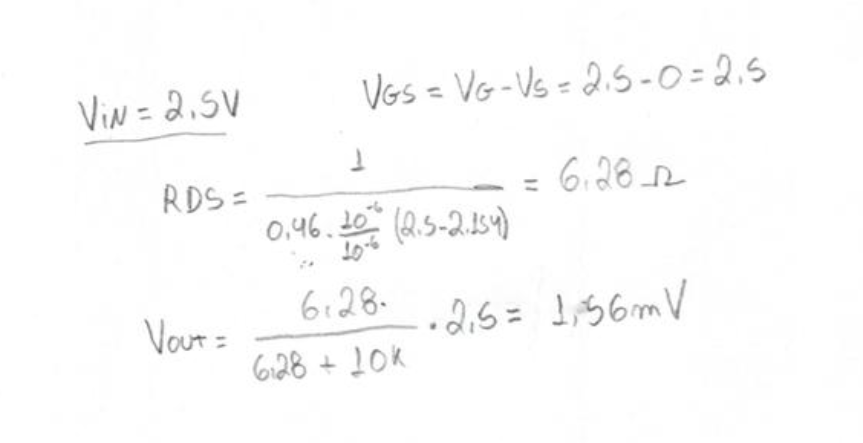 VIN = 2.5V
VGS = VG - VS = 2.5 - 0 = 2.5
RDS = 1 / (0,46 . 10^-6 / 10^-6 (2.5 - 2.154)) = 6.28 Ω
VOUT = 6.28. / (6.28 + 10K) . 2,5 = 1,56mV